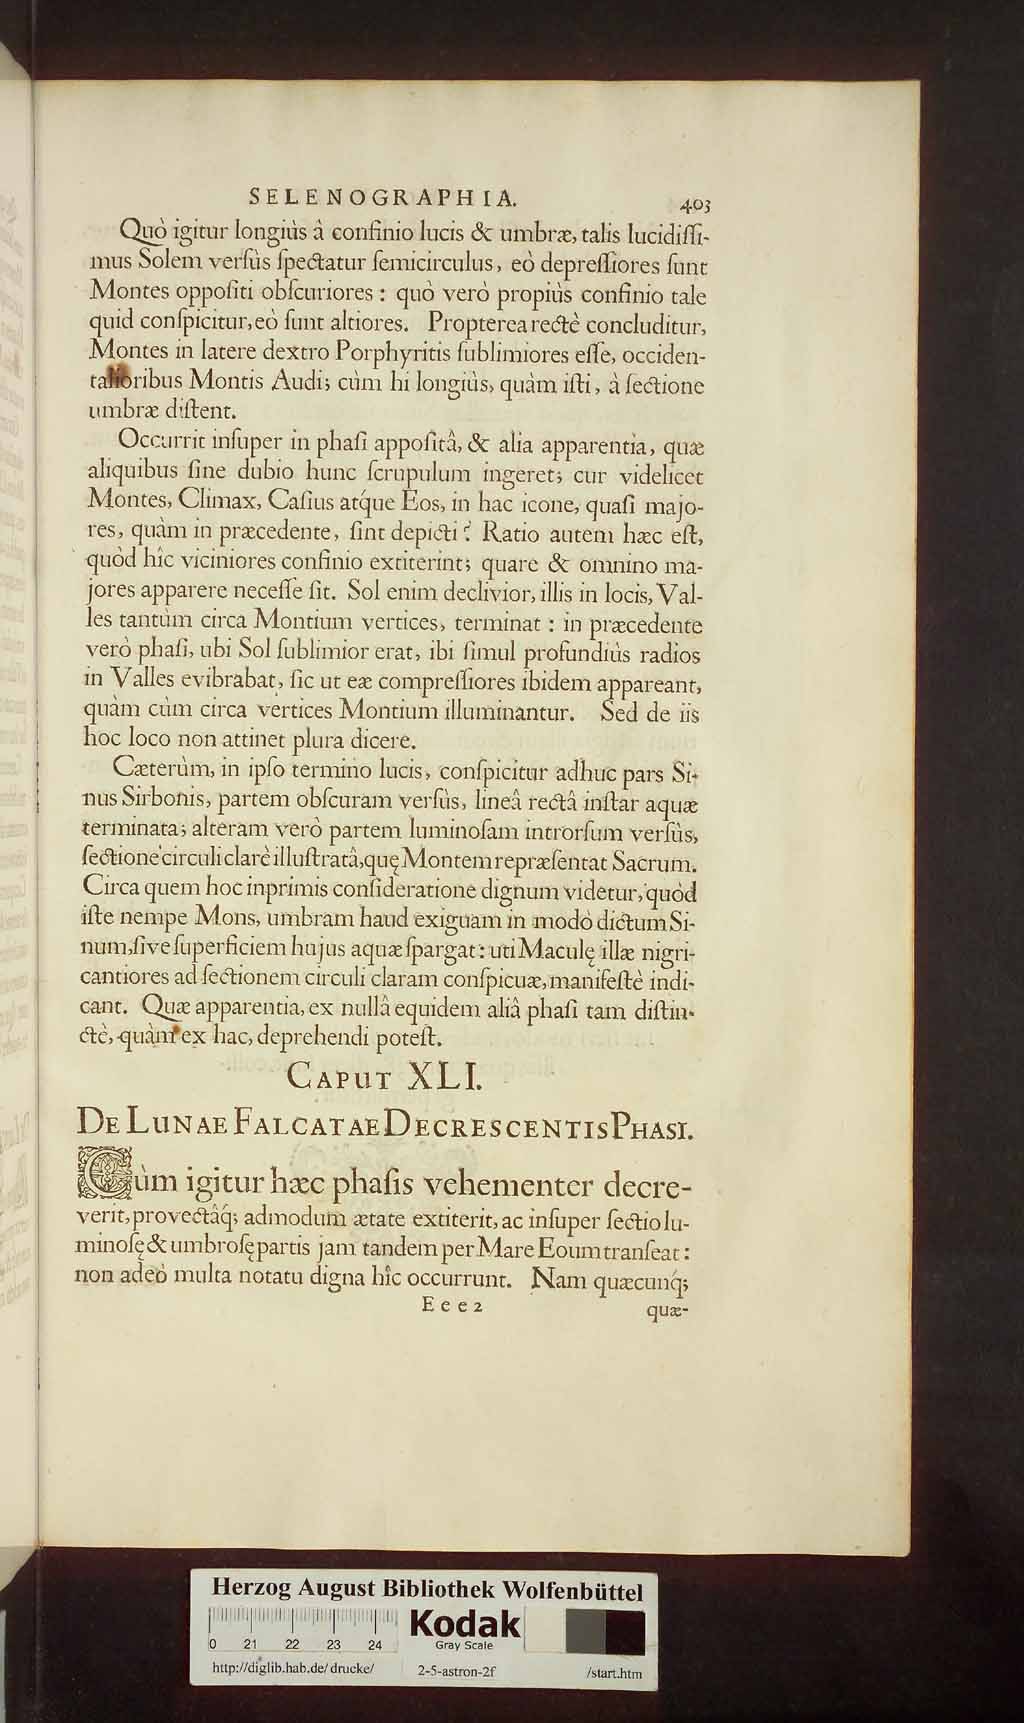 SELENOGRAPHIA. 403
Quò igitur longiùs â confinio lucis & umbræ, talis lucidiſſi-
mus Solem verſùs ſpectatur ſemicirculus, eò depreſſiores ſunt
Montes oppoſiti obſcuriores : quò verò propiùs confinio tale
quid conſpicitur, eò ſunt altiores. Propterea rectè concluditur,
Montes in latere dextro Porphyritis ſublimiores eſſe, occiden-
talioribus Montis Audi; cùm hi longiùs, quàm iſti, à ſectione
umbræ diſtent.
Occurrit inſuper in phaſi appoſitâ, & alia apparentia, quæ
aliquibus ſine dubio hunc ſcrupulum ingeret; cur videlicet
Montes, Climax, Caſius atq́ue Eos, in hac icone, quaſi majo-
res, quàm in præcedente, ſint depicti? Ratio autem hæc eſt,
quòd hîc viciniores confinio extiterint; quare & omnino ma-
jores apparere neceſſe ſit. Sol enim declivior, illis in locis, Val-
les tantùm circa Montium vertices, terminat : in præcedente
verò phaſi, ubi Sol ſublimior erat, ibi ſimul profundiùs radios
in Valles evibrabat, ſic ut eæ compreſſiores ibidem appareant,
quàm cùm circa vertices Montium illuminantur. Sed de iis
hoc loco non attinet plura dicere.
Cæterùm, in ipſo termino lucis, conſpicitur adhuc pars Si-
nus Sirbonis, partem obſcuram verſùs, lineâ rectâ inſtar aquæ
terminata; alteram verò partem luminoſam introrſum verſùs,
ſectione circuli clarè illuſtratâ, quę Montem repræſentat Sacrum.
Circa quem hoc inprimis conſideratione dignum videtur, quòd
iſte nempe Mons, umbram haud exiguam in modò dictum Si-
num, ſive ſuperficiem hujus aquæ ſpargat: uti Maculę illæ nigri-
cantiores ad ſectionem circuli claram conſpicuæ, manifeſtè indi-
cant. Quæ apparentia, ex nullâ equidem aliâ phaſi tam diſtin-
ctè, quàm ex hac, deprehendi poteſt.
CAPUT XLI.
DE LUNAE FALCATAE DECRESCENTIS PHASI.
Cùm igitur hæc phaſis vehementer decre-
verit, provectâq́; admodum ætate extiterit, ac inſuper ſectio lu-
minoſę & umbroſę partis jam tandem per Mare Eoum tranſeat :
non adeò multa notatu digna hîc occurrunt. Nam quæcunq́;
Eee2 quæ-
Herzog August Bibliothek Wolfenbüttel
0 21 22 23 24
Kodak
Gray Scale
http://diglib.hab.de/drucke/ 2-5-astron-2f /start.htm